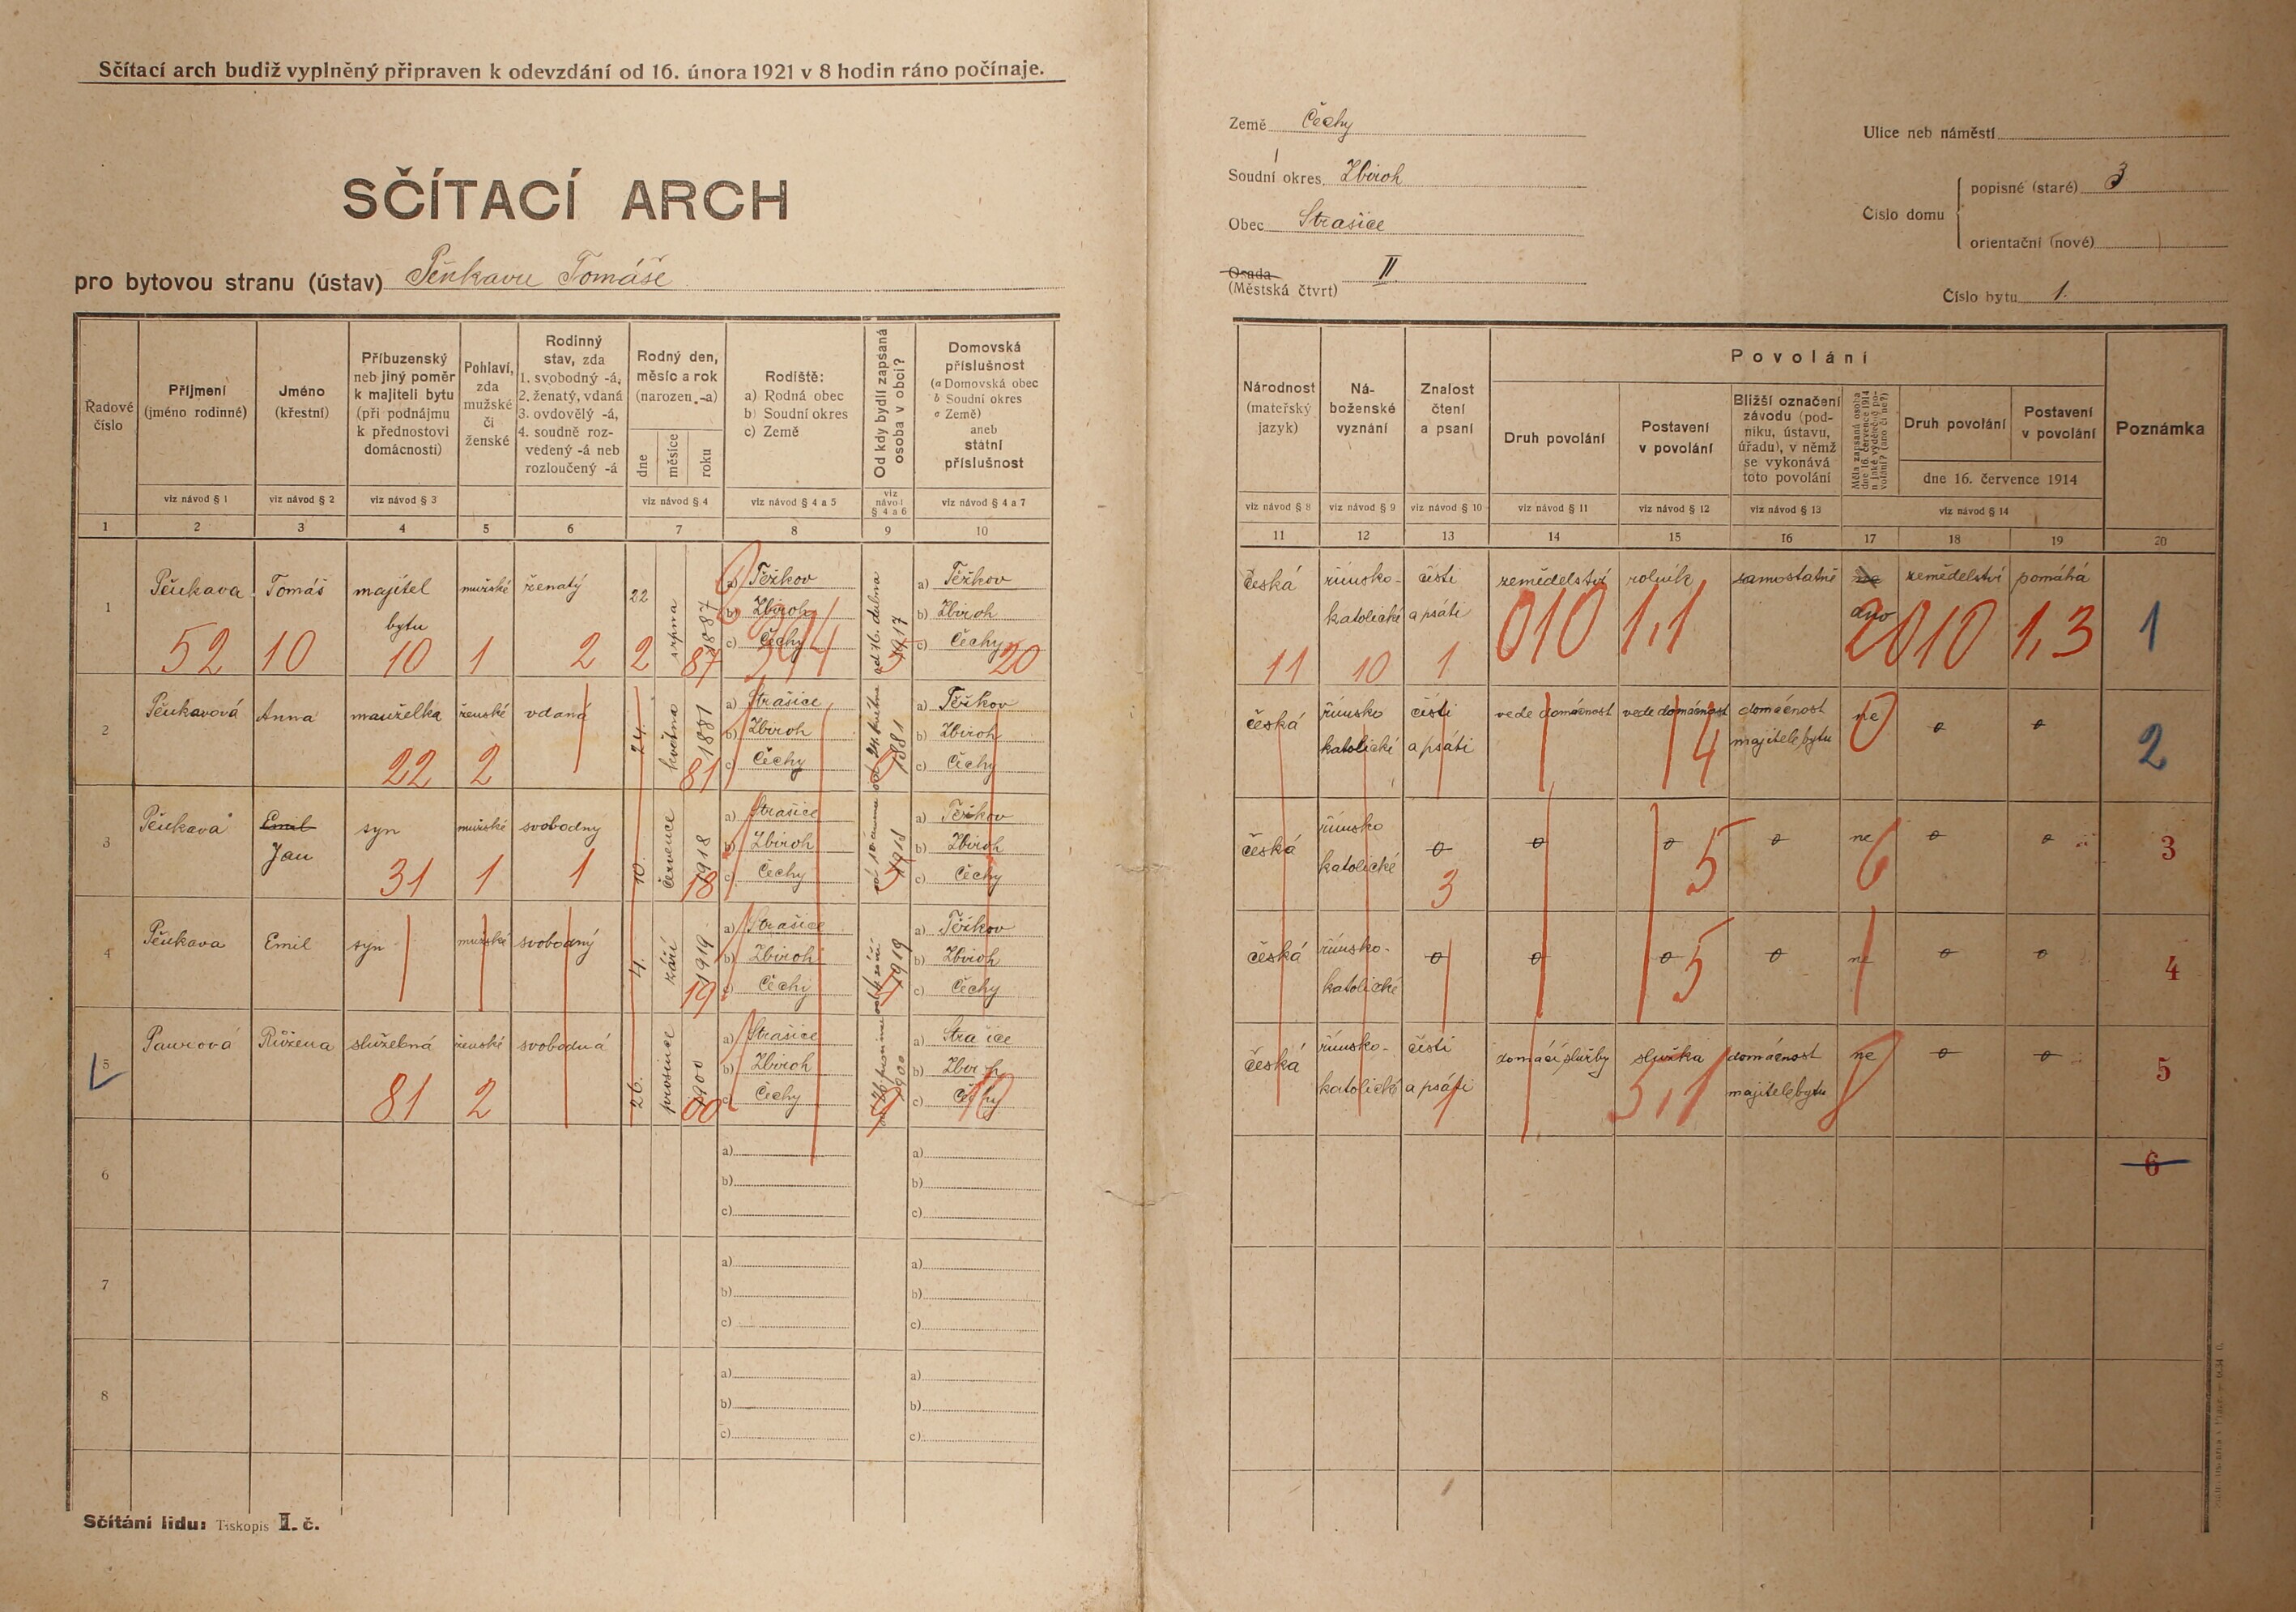 Sčítací arch budiž vyplněný připraven k odevzdání od 16. února 1921 v 8 hodin ráno počínaje.
SČÍTACÍ ARCH
pro bytovou stranu (ústav) Pěnkavu Tomáše
Země Čechy
Soudní okres Zbiroh
Obec Strašice
Osada
(Městská čtvrt) II
Ulice neb náměstí
Číslo domu
popisné (staré) 3
orientační (nové)
Číslo bytu 1.
Řadové číslo
Příjmení (jméno rodinné)
Jméno (křestní)
Příbuzenský neb jiný poměr k majiteli bytu (při podnájmu k přednostovi domácnosti)
Pohlaví, zda mužské či ženské
Rodinný stav, zda 1. svobodný -á, 2. ženatý, vdaná 3. ovdovělý -á, 4. soudně rozvedený -á neb rozloučený -á
Rodný den, měsíc a rok (narozen -a)
dne měsíce roku
Rodiště: a) Rodná obec b) Soudní okres c) Země
Od kdy bydlí zapsaná osoba v obci?
Domovská příslušnost (a Domovská obec b Soudní okres c Země) aneb státní příslušnost
viz návod § 1 viz návod § 2 viz návod § 3 viz návod § 4 viz návod § 4 a 5 viz návod § 4 a 6 viz návod § 4 a 7
1 2 3 4 5 6 7 8 9 10
Národnost (mateřský jazyk)
Náboženské vyznání
Znalost čtení a psaní
Povolání
Druh povolání
Postavení v povolání
Bližší označení závodu (podniku, ústavu, úřadu), v němž se vykonává toto povolání
Měla zapsaná osoba dne 16. července 1914 n. jaké výdělečné povolání? (ano či ne?)
Druh povolání
Postavení v povolání
dne 16. července 1914
Poznámka
viz návod § 8 viz návod § 9 viz návod § 10 viz návod § 11 viz návod § 12 viz návod § 13 viz návod § 14
11 12 13 14 15 16 17 18 19 20
1 Pěnkava Tomáš majitel bytu mužské ženatý 22 srpna 1887
a) Těžkov
b) Zbiroh
c) Čechy
od 16. dubna 1917
a) Těžkov
b) Zbiroh
c) Čechy
52 10 10 1 2 2 87 20
česká římsko-katolické čísti a psáti zemědělství rolník samostatně ano zemědělství pomáhá 1
11 10 1 010 1,1 2 010 1,3
2 Pěnkavová Anna manželka ženské vdaná 24. května 1881
a) Strašice
b) Zbiroh
c) Čechy
od 24. května 1881
a) Těžkov
b) Zbiroh
c) Čechy
22 2 81
česká římsko katolické čísti a psáti vede domácnost vede domácnost domácnost majitele bytu ne 2
4 0
3 Pěnkava Emil Jan syn mužské svobodny 10. července 1918
a) Strašice
b) Zbiroh
c) Čechy
1918
a) Těžkov
b) Zbiroh
c) Čechy
31 1 1 18
česká římsko katolické ne 3
3 5 6
4 Pěnkava Emil syn mužské svobodný 4. září 1919
a) Strašice
b) Zbiroh
c) Čechy
od 4. září 1919
a) Těžkov
b) Zbiroh
c) Čechy
19
česká římsko-katolické ne 4
5
5 Paurová Růžena služebná ženské svobodná 26. prosince 1900
a) Strašice
b) Zbiroh
c) Čechy
od 26 prosince 1900
a) Strašice
b) Zbiroh
c) Čechy
81 2 00 10
česká římsko-katolické čísti a psáti domácí služby služka domácnost majitele bytu ne 5
1 5,1
6
a)
b)
c)
a)
b)
c)
6
7
a)
b)
c)
a)
b)
c)
8
a)
b)
c)
a)
b)
c)
Sčítání lidu: Tiskopis I. č.